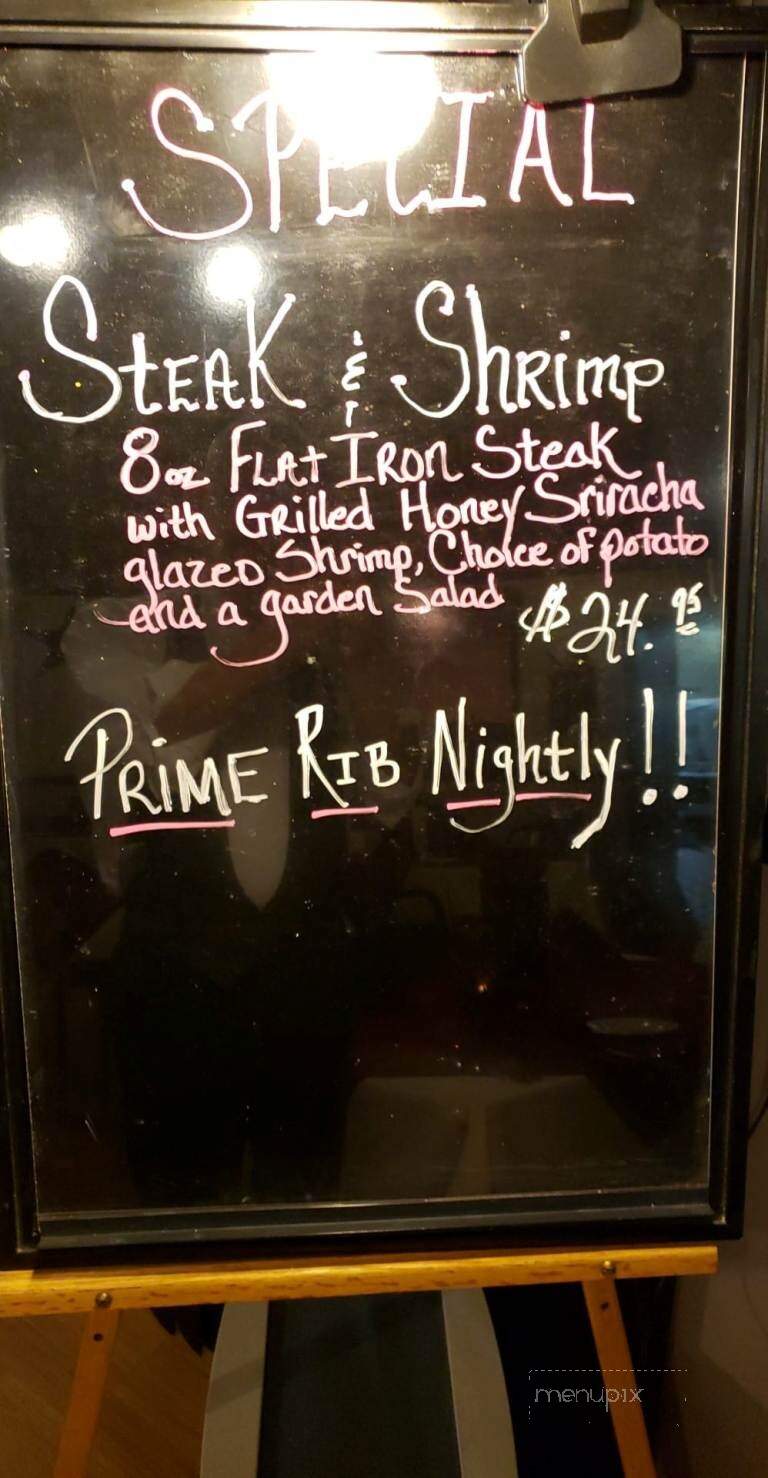 SPECIAL
STEAK & ShRimp
8oz FLAt IRon Steak
with GRilled Honey Sriracha
glazed Shrimp, Choice of potato
and a garden Salad $24.95
PRiME RIB Nightly!!
menupix